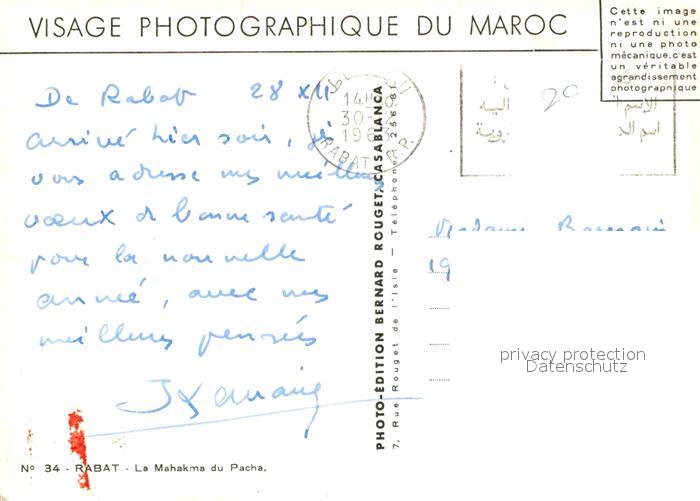 VISAGE PHOTOGRAPHIQUE DU MAROC
Cette image
n'est ni une
reproduction
ni une photo
mécanique, c'est
un véritable
agrandissement
photographique
De Rabat 28 XII
arrivé hier soir, j'ai
vous adresse mes meilleurs
vœux de bonne santé
pour la nouvelle
année, avec mes
meilleures pensées
14H
30-12
RABAT R.P.
PHOTO-ÉDITION BERNARD ROUGET, CASABLANCA
7, Rue Rouget de l'Isle — Téléphone 256-81
20
Madame
19
privacy protection
Datenschutz
Nº 34 - RABAT - La Mahakma du Pacha.